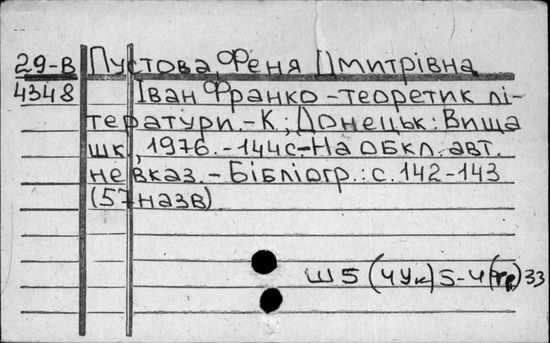 29-В Пустова, Феня Дмитрівна
4348 Іван Франко - теоретик лі-
тератури. - К.; Донецьк: Вища
шк., 1976. - 144с. - На обкл. авт.
не вказ. - Бібліогр.: с. 142-143
(57 назв)
Ш5(4Ук)5-4(Фр)33